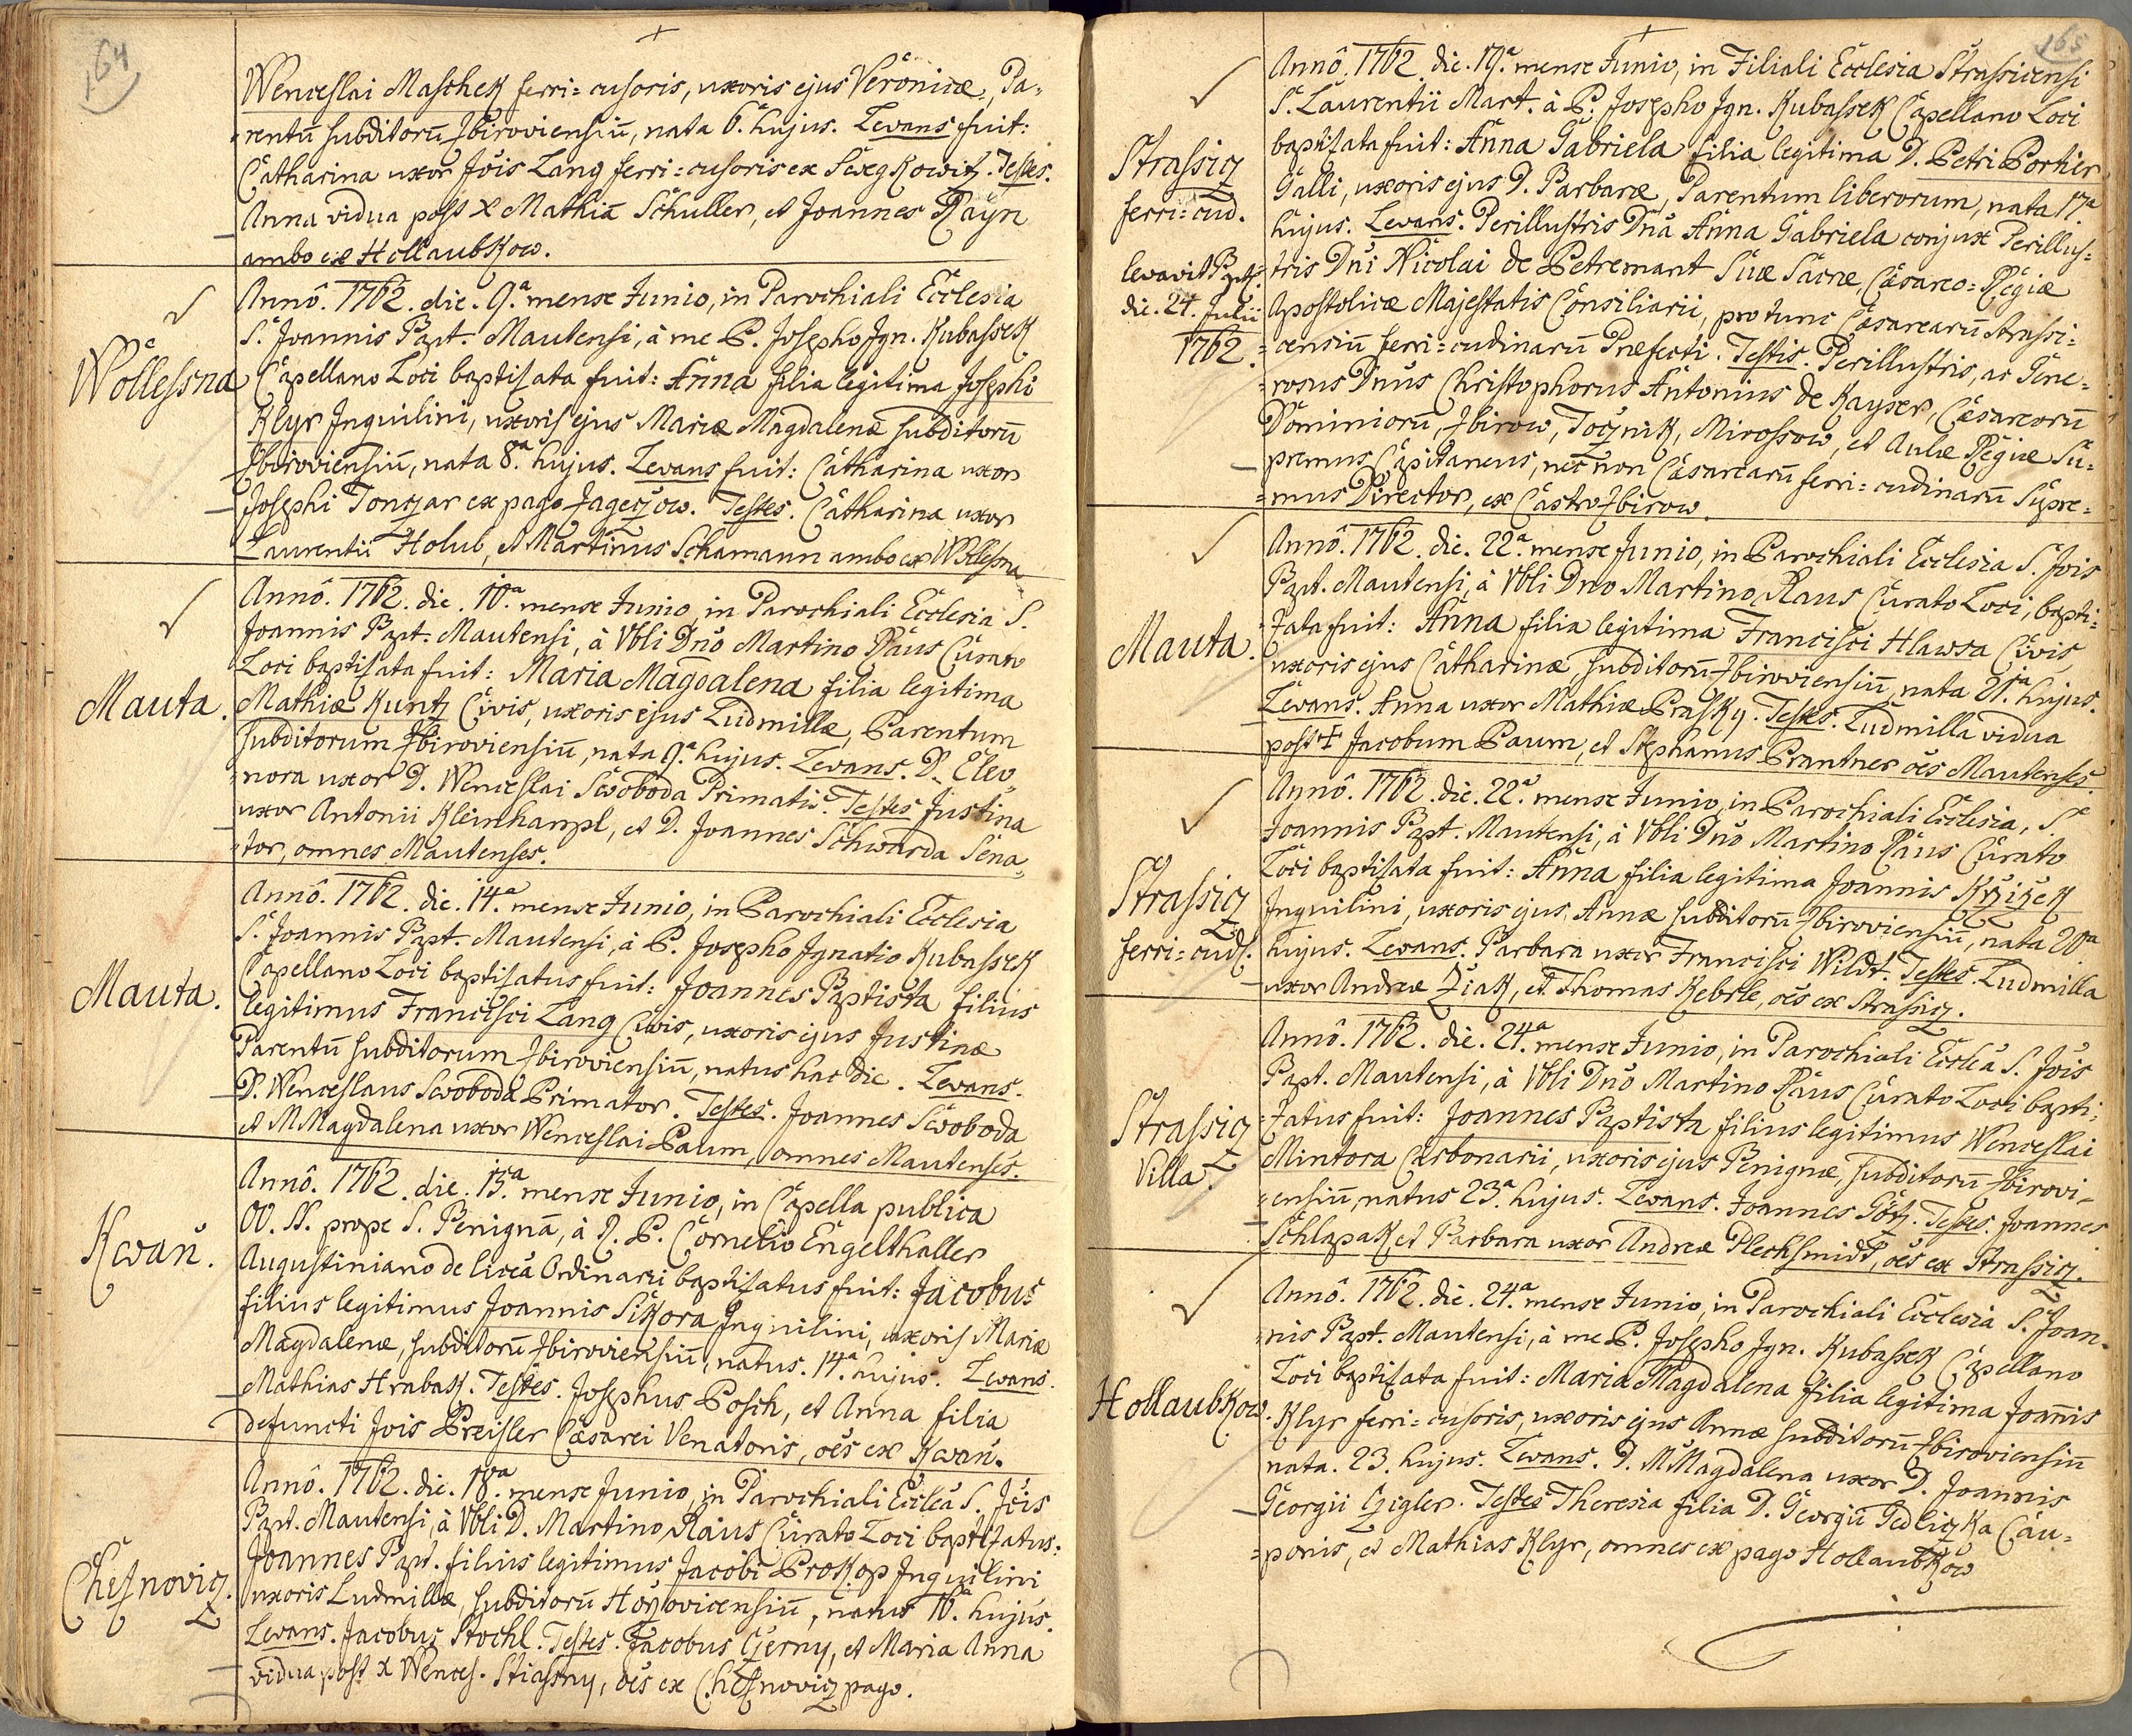 164
Wenceslai Maschek ferri=cusoris, uxoris ejus Veronicæ, Pa-
rentū subditorū Zbiroviensiū, nata 6. hujus. Levans fuit:
Catharina uxor Jōis Lang ferri=cusoris ex Swegkowitz. Testes.
Anna vidua post X Mathiā Schuller, et Joannes Rayn
ambo ex Hollaubkow.
Wollessna
Annô. 1762. die. 9.ª mense Junio, in Parochiali Ecclesia
S. Joannis Bapt. Mautensi, à me P. Josepho Jgn. Kubassek
Capellano Loci baptisata fuit: Anna filia legitima Josephi
Klyr Jnquilini, uxoris ejus Mariæ Magdalenæ subditorū
Zbiroviensiū, nata 8.ª hujus. Levans fuit: Catharina uxor
Josephi Tonczar ex pago Jageczow. Testes. Catharina uxor
Laurentii Holub, et Martinus Schamann ambo ex Wollessna
Mauta.
Annô. 1762. die. 10.ª mense Junio, in Parochiali Ecclesia S.
Joannis Bapt. Mautensi, à Vbli Dño Martino Raus Curato
Loci baptisata fuit: Maria Magdalena filia legitima
Mathiæ Kuntz Civis, uxoris ejus Ludmillæ, Parentum
subditorum Zbiroviensiū, nata 9.ª hujus. Levans. D. Eleo-
nora uxor D. Wenceslai Swoboda Primatis. Testes Justina
uxor Antonii Kleinhampl, et D. Joannes Schwarda Sena-
tor, omnes Mautenses.
Mauta.
Annô. 1762. die. 14.ª mense Junio, in Parochiali Ecclesia
S. Joannis Bapt. Mautensi, à P. Josepho Jgnatio Kubassek
Capellano Loci baptisatus fuit: Joannes Baptista filius
legitimus Francisci Lang Civis, uxoris ejus Justinæ
Parentū subditorum Zbiroviensiū, natus hac die. Levans.
D. Wenceslaus Swoboda Primator. Testes. Joannes Swoboda
et M Magdalena uxor Wenceslai Baum, omnes Mautenses.
Kwaň.
Annô. 1762. die. 15.ª mense Junio, in Capella publica
OO. SS. prope S. Benignā, à R. P. Cornelio Engelthaller
Augustiniano de licēa Ordinarii baptisatus fuit: Jacobus
filius legitimus Joannis Sikora Jnquilini, uxoris Mariæ
Magdalenæ, subditorū Zbiroviensiū, natus. 14.ª hujus. Levans.
Mathias Hrabak. Testes. Josephus Posch, et Anna filia
defuncti Jōis Preisler Cæsarei Venatoris, oēs ex Kwaň.
Cheznovicz.
Annô. 1762. die. 18.ª mense Junio, in Parochiali Ecclēa S. Jōis
Bapt. Mautensi, à Vbli D. Martino Raus Curato Loci baptisatus:
Joannes Bapt. filius legitimus Jacobi Prokop Jnquilini
uxoris Ludmillæ, subditorū Horzovicensiū, natus 16. hujus.
Levans. Jacobus Stochl. Testes. Jacobus Czerny, et Maria Anna
vidua post X Wences. Stiasny, oēs ex Cheznovicz pago.
165
Strassicz
ferri=cud.
levavit Bapt.
die. 24. Julii
1762.
Annô. 1762. die. 19.ª mense Junio, in Filiali Ecclesia Strassicensi
S. Laurentii Mart. à P. Josepho Jgn. Kubassek Capellano Loci
baptisata fuit: Anna Gabriela filia legitima D. Petri Porhir
Galli, uxoris ejus D. Barbaræ, Parentum liberorum, nata 17.ª
hujus. Levans. Perillustris Dña Anna Gabriela conjux Perillus-
tris Dñi Nicolai de Petremant Suæ Sacræ, Cæsareo=Regiæ
Apostolicæ Majestatis Consiliarii, pro tunc Cæsarearū Strassi-
censiū ferri=cudinarū Præfecti. Testis. Perillustris, ac Gene-
rosus Dñus Christophorus Antonius de Kayser, Cæsareorū
Dominiorū, Zbirow, Tocznik, Mirossow, et Aulæ Regiæ Su-
premus Capitaneus, nec non Cæsarearū ferri=cudinarū Supre-
mus Director, ex Castro Zbirow.
Mauta.
Annô. 1762. die. 22.ª mense Junio, in Parochiali Ecclesia S. Jōis
Bapt. Mautensi, à Vbli Dño Martino Raus Curato Loci, bapti-
zata fuit: Anna filia legitima Francisci Hlawsa Civis
uxoris ejus Catharinæ, subditorū Zbiroviensiū, nata 21.ª hujus.
Levans. Anna uxor Mathiæ Prasky. Testes. Ludmilla vidua
post ✝ Jacobum Baum, et Stephanus Prantner oēs Mautenses.
Strassicz
ferri=cud.
Annô. 1762. die. 22.ª mense Junio, in Parochiali Ecclesia, S.
Joannis Bapt. Mautensi, à Vbli Dño Martino Raus Curato
Loci baptisata fuit: Anna filia legitima Joannis Krzizek
Jnquilini, uxoris ejus Annæ subditorū Zbiroviensiū, nata 20.ª
hujus. Levans. Barbara uxor Francisci Wildt. Testes. Ludmilla
uxor Andreæ Ziak, et Thomas Kebrle, oēs ex Strassicz.
Strassicz
Villa.
Annô. 1762. die. 24.ª mense Junio, in Parochiali Ecclēa S. Jōis
Bapt. Mautensi, à Vbli Dño Martino Raus Curato Loci bapti-
zatus fuit: Joannes Baptista filius legitimus Wenceslai
Mintora Carbonarii, uxoris ejus Benignæ, subditorū Zbirovi-
ensiū, natus 23.ª hujus. Levans. Joannes Götz. Testes. Joannes
Schlapak, et Barbara uxor Andreæ Plechsmidt, oēs ex Strassicz.
Hollaubkow.
Annô. 1762. die. 24.ª mense Junio, in Parochiali Ecclesia S. Joan-
nis Bapt. Mautensi, à me P. Josepho Jgn. Kubassek Capellano
Loci baptisata fuit: Maria Magdalena filia legitima Joannis
Klyr ferri=cusoris, uxoris ejus Annæ subditorū Zbiroviensiū
nata. 23. hujus. Levans. D. M Magdalena uxor D. Joannis
Georgii Czigler. Testes Theresia filia D. Georgii Gedliczka Cau-
ponis, et Mathias Klyr, omnes ex pago Hollaubkow